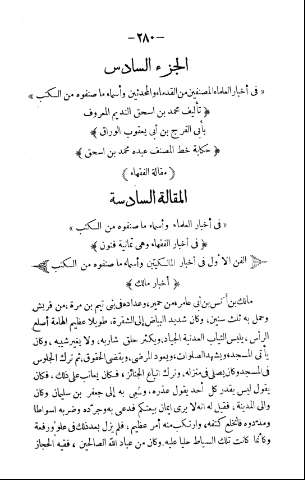 — ٢٨٠ —
الجزء السادس
« فى أخبار العلماء المصنفين من القدماء والمحدثين وأسماء ما صنفوه من الكتب »
﴿ تأليف محمد بن اسحق النديم المعروف ﴾
بأبى الفرج بن أبى يعقوب الوراق ﴾
﴿ حكاية خط المصنف عبده محمد بن اسحق ﴾
( مقالة الفقهاء )
المقالة السادسة
« فى أخبار العلماء وأسماء ما صنفوه من الكتب »
﴿ فى أخبار الفقهاء وهى ثمانية فنون ﴾
الفن الاول فى أخبار المالكيين وأسماء ما صنفوه من الكتب
﴿ أخبار مالك ﴾
مالك بن أنس بن أبى عامر، من حمير، وعداده فى بنى تيم بن مرة، من قريش
وحمل به ثلث سنين، وكان شديد البياض إلى الشقرة، طويلا عظيم الهامة أصلع
الرأس، يلبس الثياب العدنية الجياد، ويكثر حلق شاربه، ولا يغير شيبه، وكان
يأتى المسجد، ويشهد الصلوات، ويعود المرضى، ويقضى الحقوق، ثم ترك الجلوس
فى المسجد وكان يصلى فى منزله، وترك اتباع الجنائز، فكان يعاتب على ذلك، فكان
يقول ليس يقدر كل أحد يقول عذره، وسعى به إلى جعفر بن سليمان وكان
والى المدينة، فقيل له انه لا يرى ايمان بيعتكم فدعى به وجرده وضربه اسواطا
ومددوه فانخلع كتفه، وارتكب منه أمر عظيم، فلم يزل بعد ذلك فى علو ورفعة
وكأنما كانت تلك السياط حليا عليه وكان من عباد الله الصالحين، فقيه الحجاز